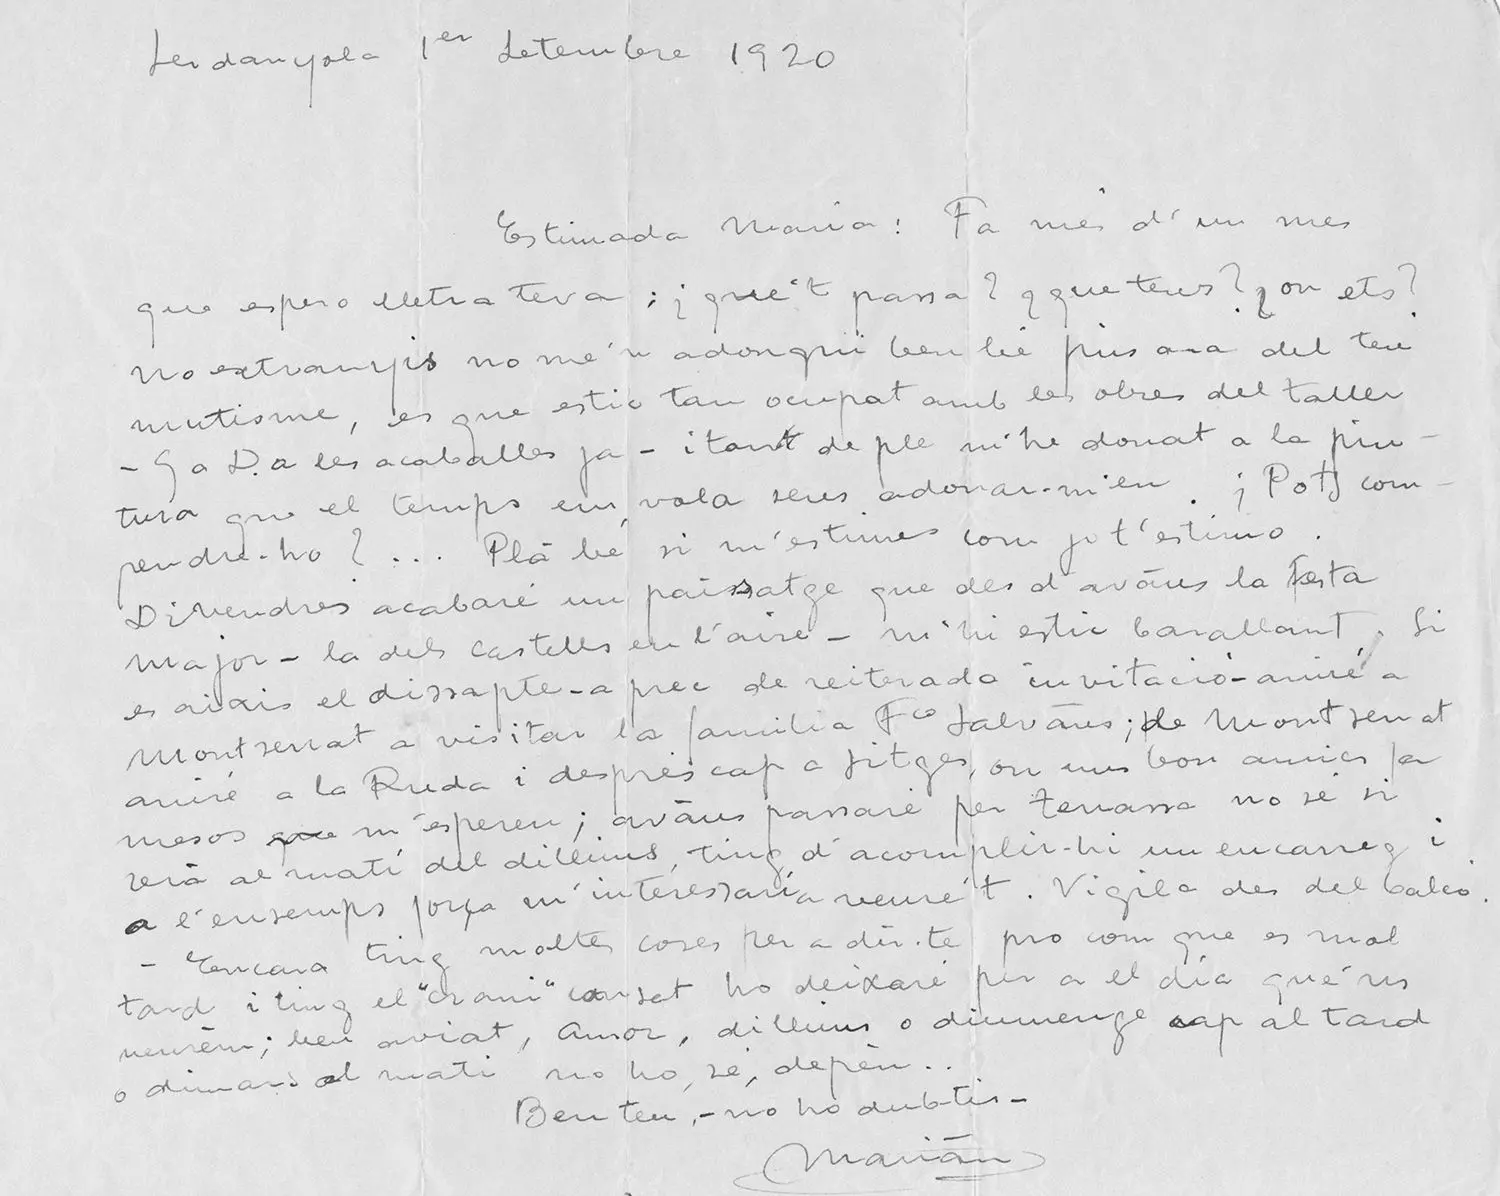 Serdanyola 1er Setembre 1920
Estimada Maria: Fa més d'un mes
que espero lletra teva; ¿què't passa? ¿que tens? ¿on ets?
no extranyis no me'n adongui ben bé fins ara del teu
mutisme, es que estic tan ocupat amb les obres del taller
- Ja a les acaballes ja - i tant de ple m'he donat a la pin-
tura que el temps em vola sens adonar-m'en. ¡Pots com-
pendre-ho? ... Plā bé si m'estimes com jo t'estimo.
Divendres acabaré un paissatge que des d'avāns la festa
major - la dels castells en l'aire - m'hi estic barallant. Si
es aixis el dissapte - a prec de reiterada invitació - aniré a
Montserrat a visitar la familia Fco Salvāns; de Montserrat
aniré a la Ruda i desprès cap a Sitges, on uns bon amics fa
mesos que m'esperen; avāns passaré per Terrassa no sé si
serà al matí del dilluns, ting d'acomplir-hi un encarreg i
a l'ensemps força m'interessaría veure't. Vigila des del balco.
- Encara ting moltes coses per a dir-te pro com que es mol
tard i ting el "crani" cansat ho deixaré per a el día que'ns
veurèm; ben aviat, Amor, dilluns o diumenge cap al tard
o dimars al mati no ho sé, depèn..
Ben teu, - no ho dubtis -
Mariān